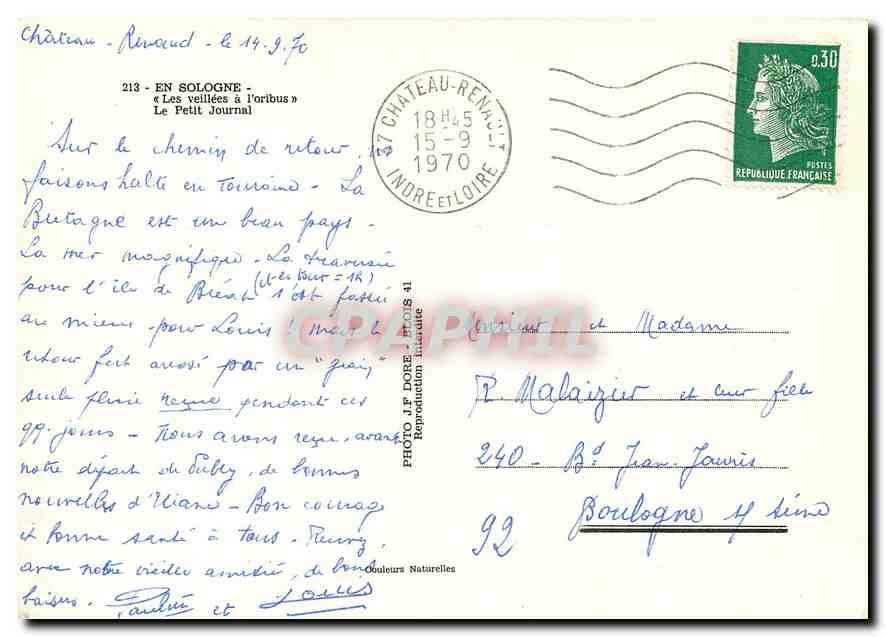 Château-Renaud - le 14.9.70
213 - EN SOLOGNE -
« Les veillées à l'oribus »
Le Petit Journal
Sur le chemin de retour, ns
faisons halte en Touraine - La
Bretagne est un beau pays.
La mer magnifique - La traversée
pour l'île de Bréhat s'est passée
(et le tour = 1h)
au mieux - pour Louis ! mais le
retour fut arrosé par un "grain"
seule pluie reçue pendant ces
jours - Nous avons reçu, avant
notre départ de, de bonnes
nouvelles d'Eliane - Bon courage
et bonne santé à tous -
avec notre vieille amitié, de bons
baisers. Paulette et Louis
37 CHATEAU-RENAULT
18H45
15-9
1970
INDRE ET LOIRE
0,30
POSTES
REPUBLIQUE FRANÇAISE
PHOTO J.F. DORE - BLOIS 41
Reproduction interdite
Couleurs Naturelles
CPAPHIL
Monsieur et Madame
R. Malaizier et leur fille
240 - Bd Jean-Jaurès
Boulogne s/ Seine
92